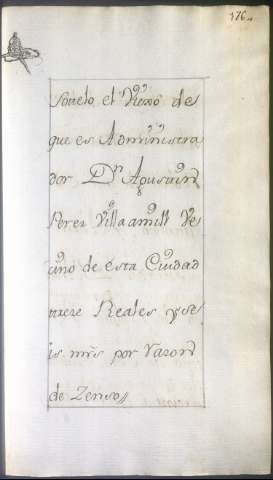 176
Sovelo, el Vinculo de
que es Administra
dor Dn Agustin
Perez Villaamill Ve
cino de esta Ciudad
nueve Reales y se
is mrs por razon
de Zenso